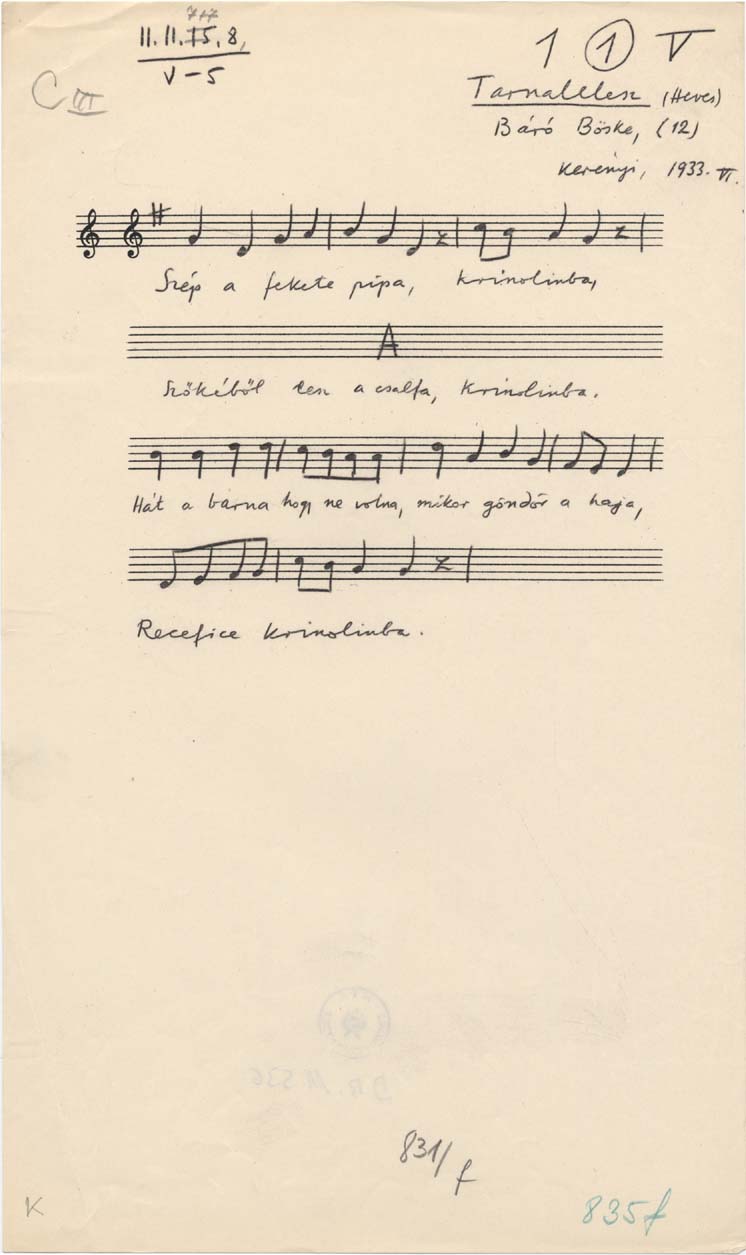 7+7
11.11.15.8,
V-5
C VI
1 1 V
Tarnalelesz (Heves)
Báró Böske, (12)
Kerényi, 1933. VI.
Szép a fekete pipa, krinolinba,
A
Szőkéből lesz a csalfa, krinolinba.
Hát a barna hogy ne volna, mikor göndör a haja,
Recefice krinolinba.
831/f
K
835f